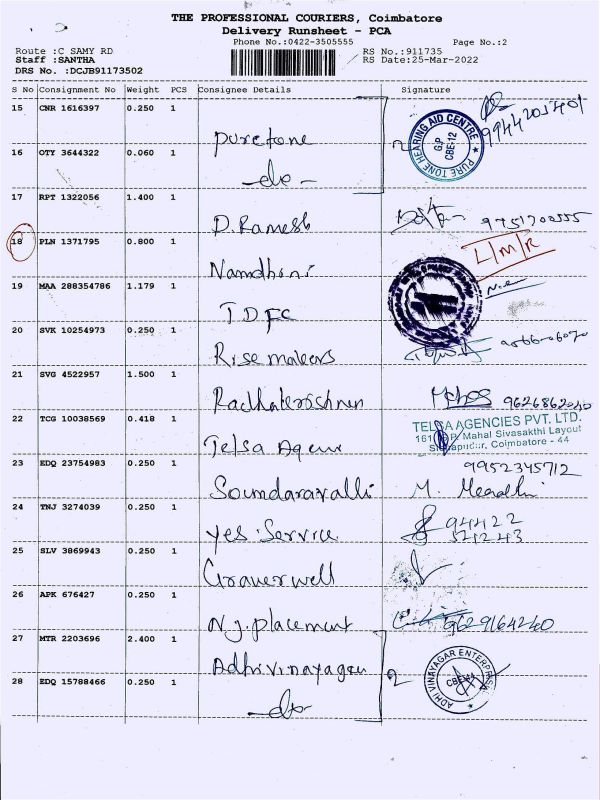 THE PROFESSIONAL COURIERS, Coimbatore
Delivery Runsheet - PCA
Phone No.:0422-3505555 Page No.:2
Route :C SAMY RD RS No.:911735
Staff :SANTHA RS Date:25-Mar-2022
DRS No. :DCJB91173502
S No Consignment No Weight PCS Consignee Details Signature
15 CNR 1616397 0.250 1 Puretone
PURE TONE HEARING AID CENTRE G.P. CBE-12
16 OTY 3644322 0.060 1 -do-
17 RPT 1322056 1.400 1 D.Ramesh 9751700555
18 PLN 1371795 0.800 1 Nandhini L/M/R
19 MAA 288354786 1.179 1 IDFC
20 SVK 10254973 0.250 1 Rise makers
21 SVG 4522957 1.500 1 Radhakrishnan
22 TCG 10038569 0.418 1 Telsa Agency
TELSA AGENCIES PVT. LTD.
Mahal Sivasakthi Layout
Coimbatore - 44
23 EDQ 23754983 0.250 1 Soundaravalli 9952345712
24 TNJ 3274039 0.250 1 Yes Service 94422
541243
25 SLV 3869943 0.250 1
26 APK 676427 0.250 1 N.J.placement 9629164240
27 MTR 2203696 2.400 1 Adhivinayagar
28 EDQ 15788466 0.250 1 -do-
ADHI VINAYAGAR ENTERPRISES